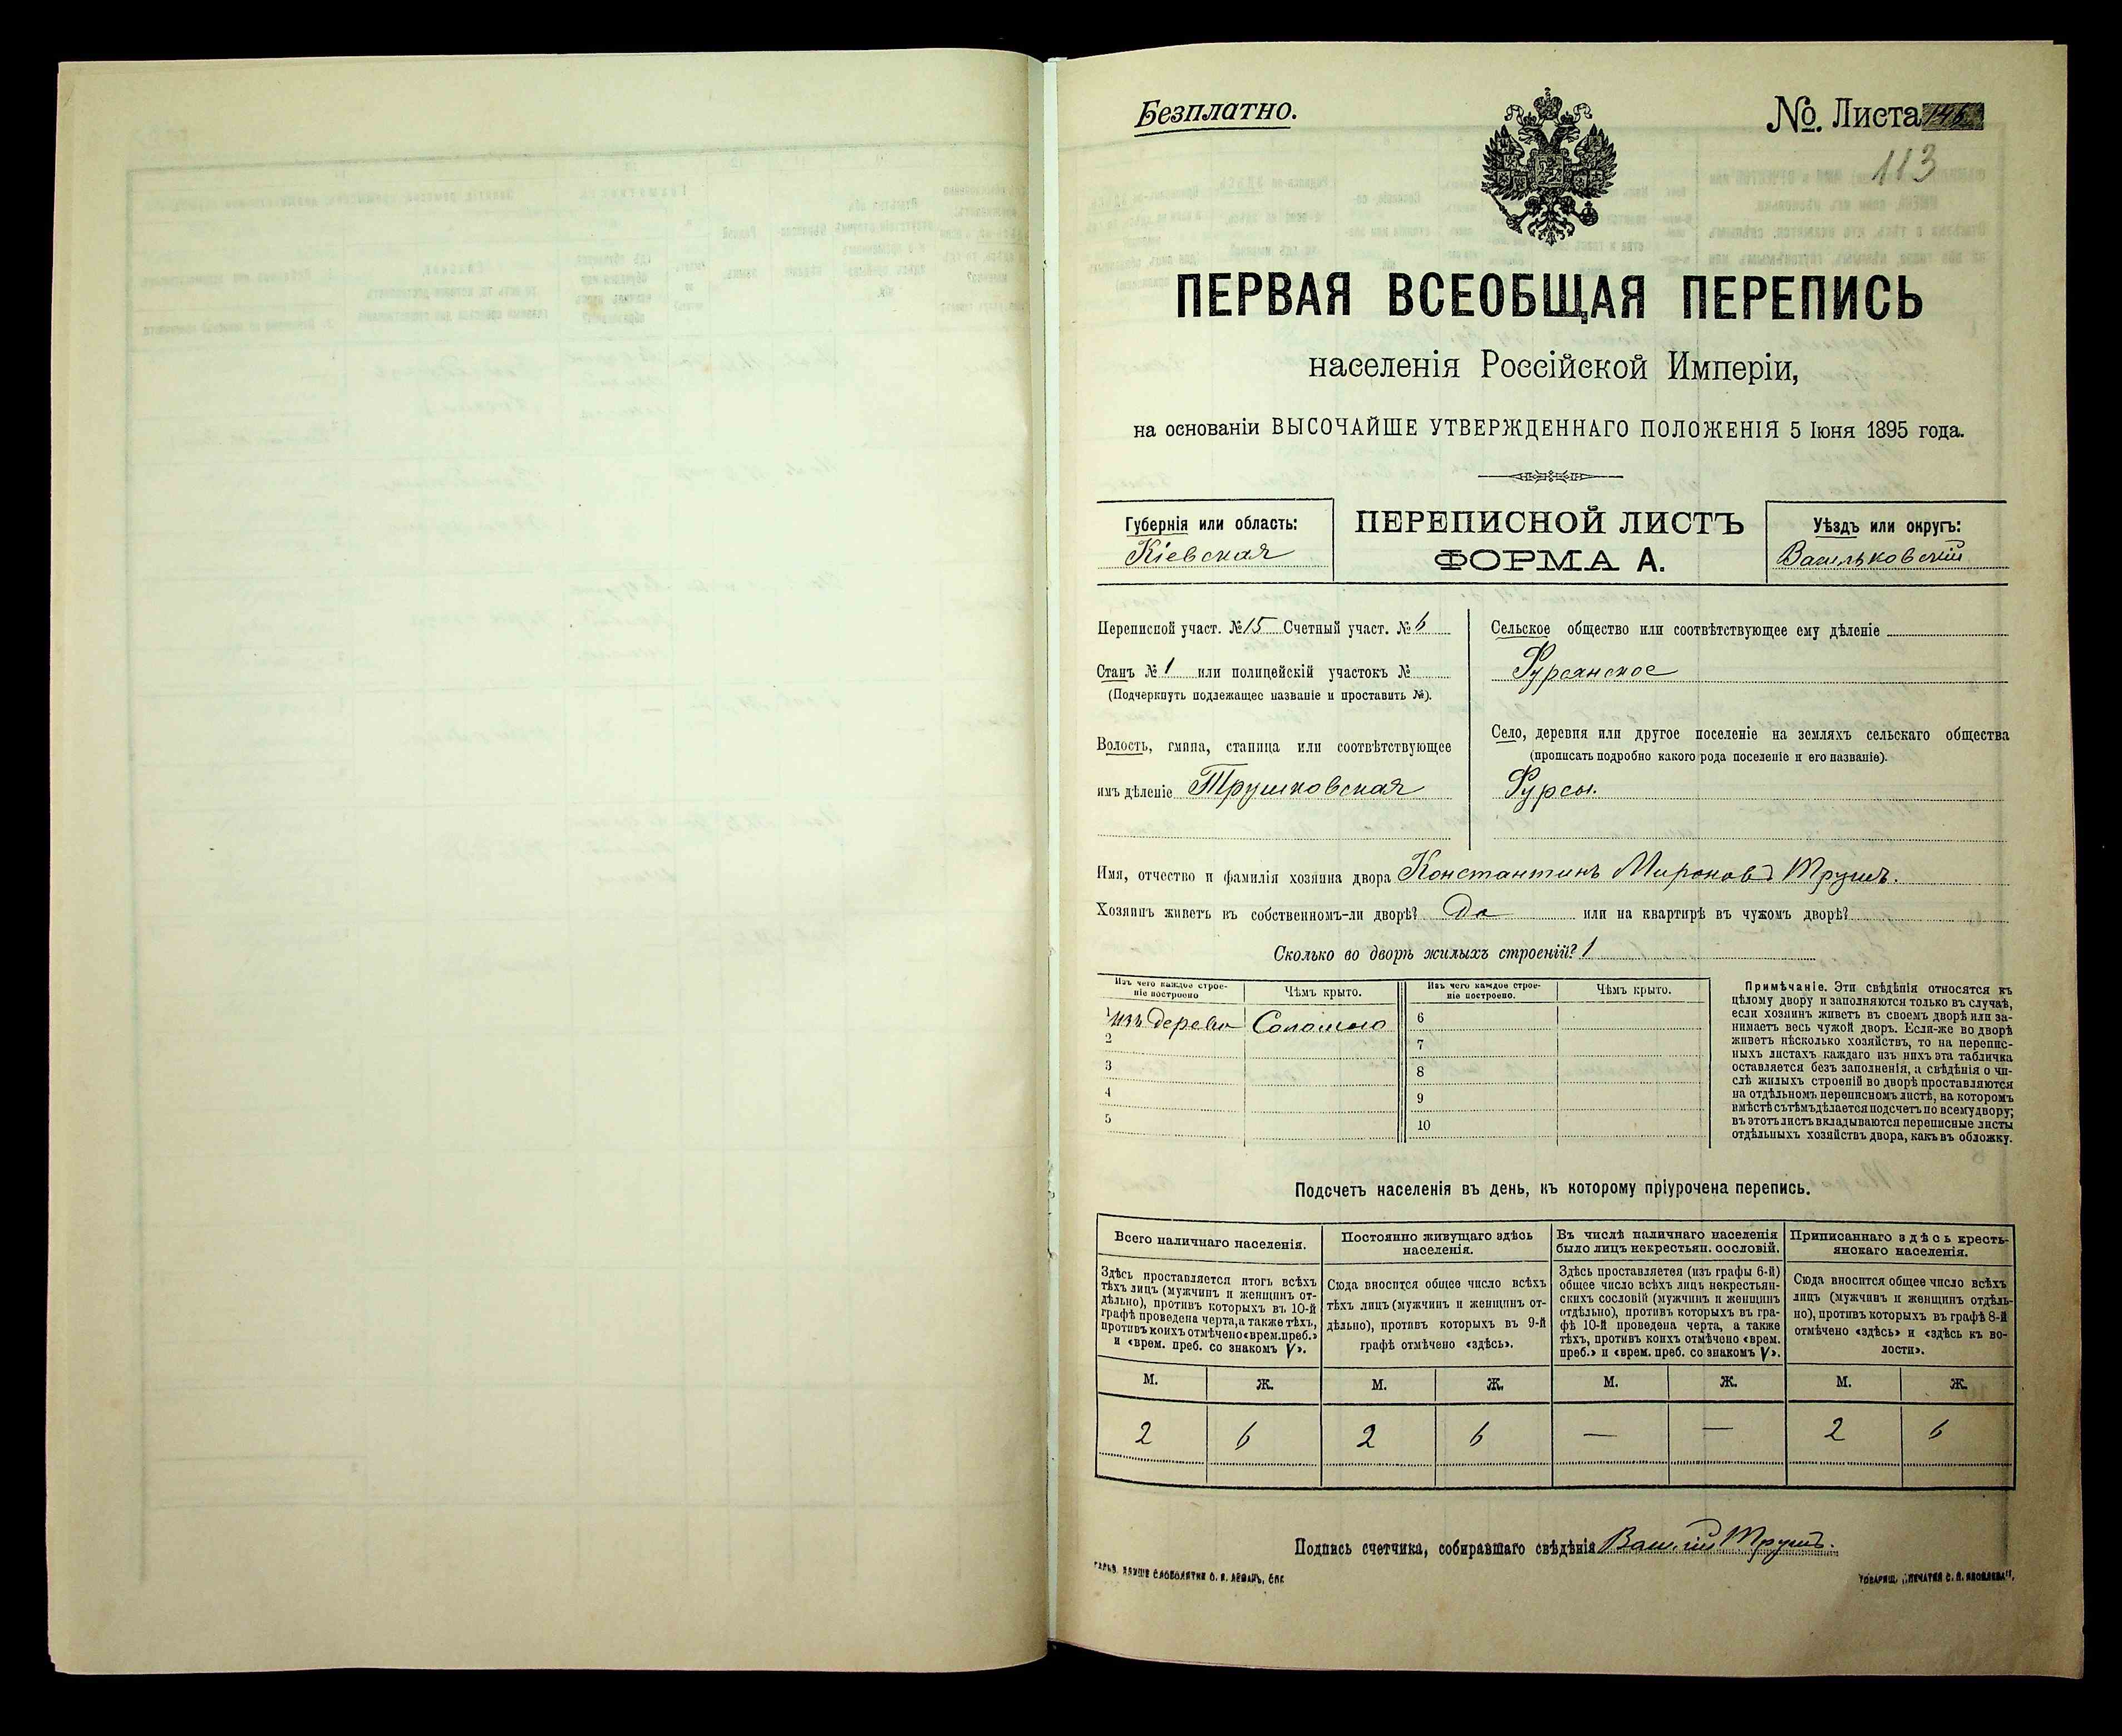 Безплатно.
№. Листа 146
113
ПЕРВАЯ ВСЕОБЩАЯ ПЕРЕПИСЬ
населенія Россійской Имперіи,
на основаніи ВЫСОЧАЙШЕ УТВЕРЖДЕННАГО ПОЛОЖЕНІЯ 5 Іюня 1895 года.
Губернія или область:
Кіевская
ПЕРЕПИСНОЙ ЛИСТЪ
ФОРМА А.
Уѣздъ или округъ:
Васильковскій
Переписной участ. № 15 Счетный участ. № 6
Станъ № 1 или полицейскій участокъ №
(Подчеркнуть подлежащее названіе и проставить №).
Волость, гмина, станица или соотвѣтствующее
имъ дѣленіе Трушковская
Сельское общество или соотвѣтствующее ему дѣленіе
Фурсянское
Село, деревня или другое поселеніе на земляхъ сельскаго общества
(прописать подробно какого рода поселеніе и его названіе).
Фурсы.
Имя, отчество и фамилія хозяина двора Константинъ Мироновъ Трушъ.
Хозяинъ живетъ въ собственномъ-ли дворѣ? Да или на квартирѣ въ чужомъ дворѣ?
Сколько во дворѣ жилыхъ строеній? 1
Изъ чего каждое строе-
ніе построено
Чѣмъ крыто.
Изъ чего каждое строе-
ніе построено.
Чѣмъ крыто.
1 изъ дерева Соломою
2
3
4
5
6
7
8
9
10
Примѣчаніе. Эти свѣдѣнія относятся къ
цѣлому двору и заполняются только въ случаѣ,
если хозяинъ живетъ въ своемъ дворѣ или за-
нимаетъ весь чужой дворъ. Если-же во дворѣ
живетъ нѣсколько хозяйствъ, то на перепис-
ныхъ листахъ каждаго изъ нихъ эта табличка
оставляется безъ заполненія, а свѣдѣнія о чи-
слѣ жилыхъ строеній во дворѣ проставляются
на отдѣльномъ переписномъ листѣ, на которомъ
вмѣстѣ съ тѣмъ дѣлается подсчетъ по всему двору;
въ этотъ листъ вкладываются переписные листы
отдѣльныхъ хозяйствъ двора, какъ въ обложку.
Подсчетъ населенія въ день, къ которому пріурочена перепись.
Всего наличнаго населенія.
Здѣсь проставляется итогъ всѣхъ
тѣхъ лицъ (мужчинъ и женщинъ от-
дѣльно), противъ которыхъ въ 10-й
графѣ проведена черта, а также тѣхъ,
противъ коихъ отмѣчено «врем. преб.»
и «врем. преб. со знакомъ V».
Постоянно живущаго здѣсь
населенія.
Сюда вносится общее число всѣхъ
тѣхъ лицъ (мужчинъ и женщинъ от-
дѣльно), противъ которыхъ въ 9-й
графѣ отмѣчено «здѣсь».
Въ числѣ наличнаго населенія
было лицъ некрестьян. сословій.
Здѣсь проставляется (изъ графы 6-й)
общее число всѣхъ лицъ некрестьян-
скихъ сословій (мужчинъ и женщинъ
отдѣльно), противъ которыхъ въ гра-
фѣ 10-й проведена черта, а также
тѣхъ, противъ коихъ отмѣчено «врем.
преб.» и «врем. преб. со знакомъ V».
Приписаннаго здѣсь кресть-
янскаго населенія.
Сюда вносится общее число всѣхъ
лицъ (мужчинъ и женщинъ отдѣль-
но), противъ которыхъ въ графѣ 8-й
отмѣчено «здѣсь» и «здѣсь къ во-
лости».
М. Ж. М. Ж. М. Ж. М. Ж.
2 6 2 6 — — 2 6
Подпись счетчика, собиравшаго свѣдѣнія Василій Трушъ.
ТОВАРИЩ. „ПЕЧАТНЯ С. П. ЯКОВЛЕВА".